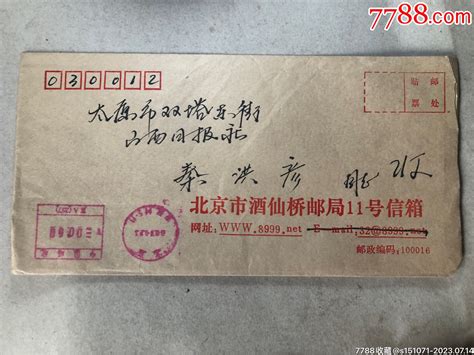 7788.com
030012
贴邮
票处
太原市双塔东街
山西日报社
蔡洪彦 收
北京市酒仙桥邮局11号信箱
网址:WWW.8999.net E-mail:32@8999.net
邮政编码:100016
7788收藏@s151071-2023.07.14